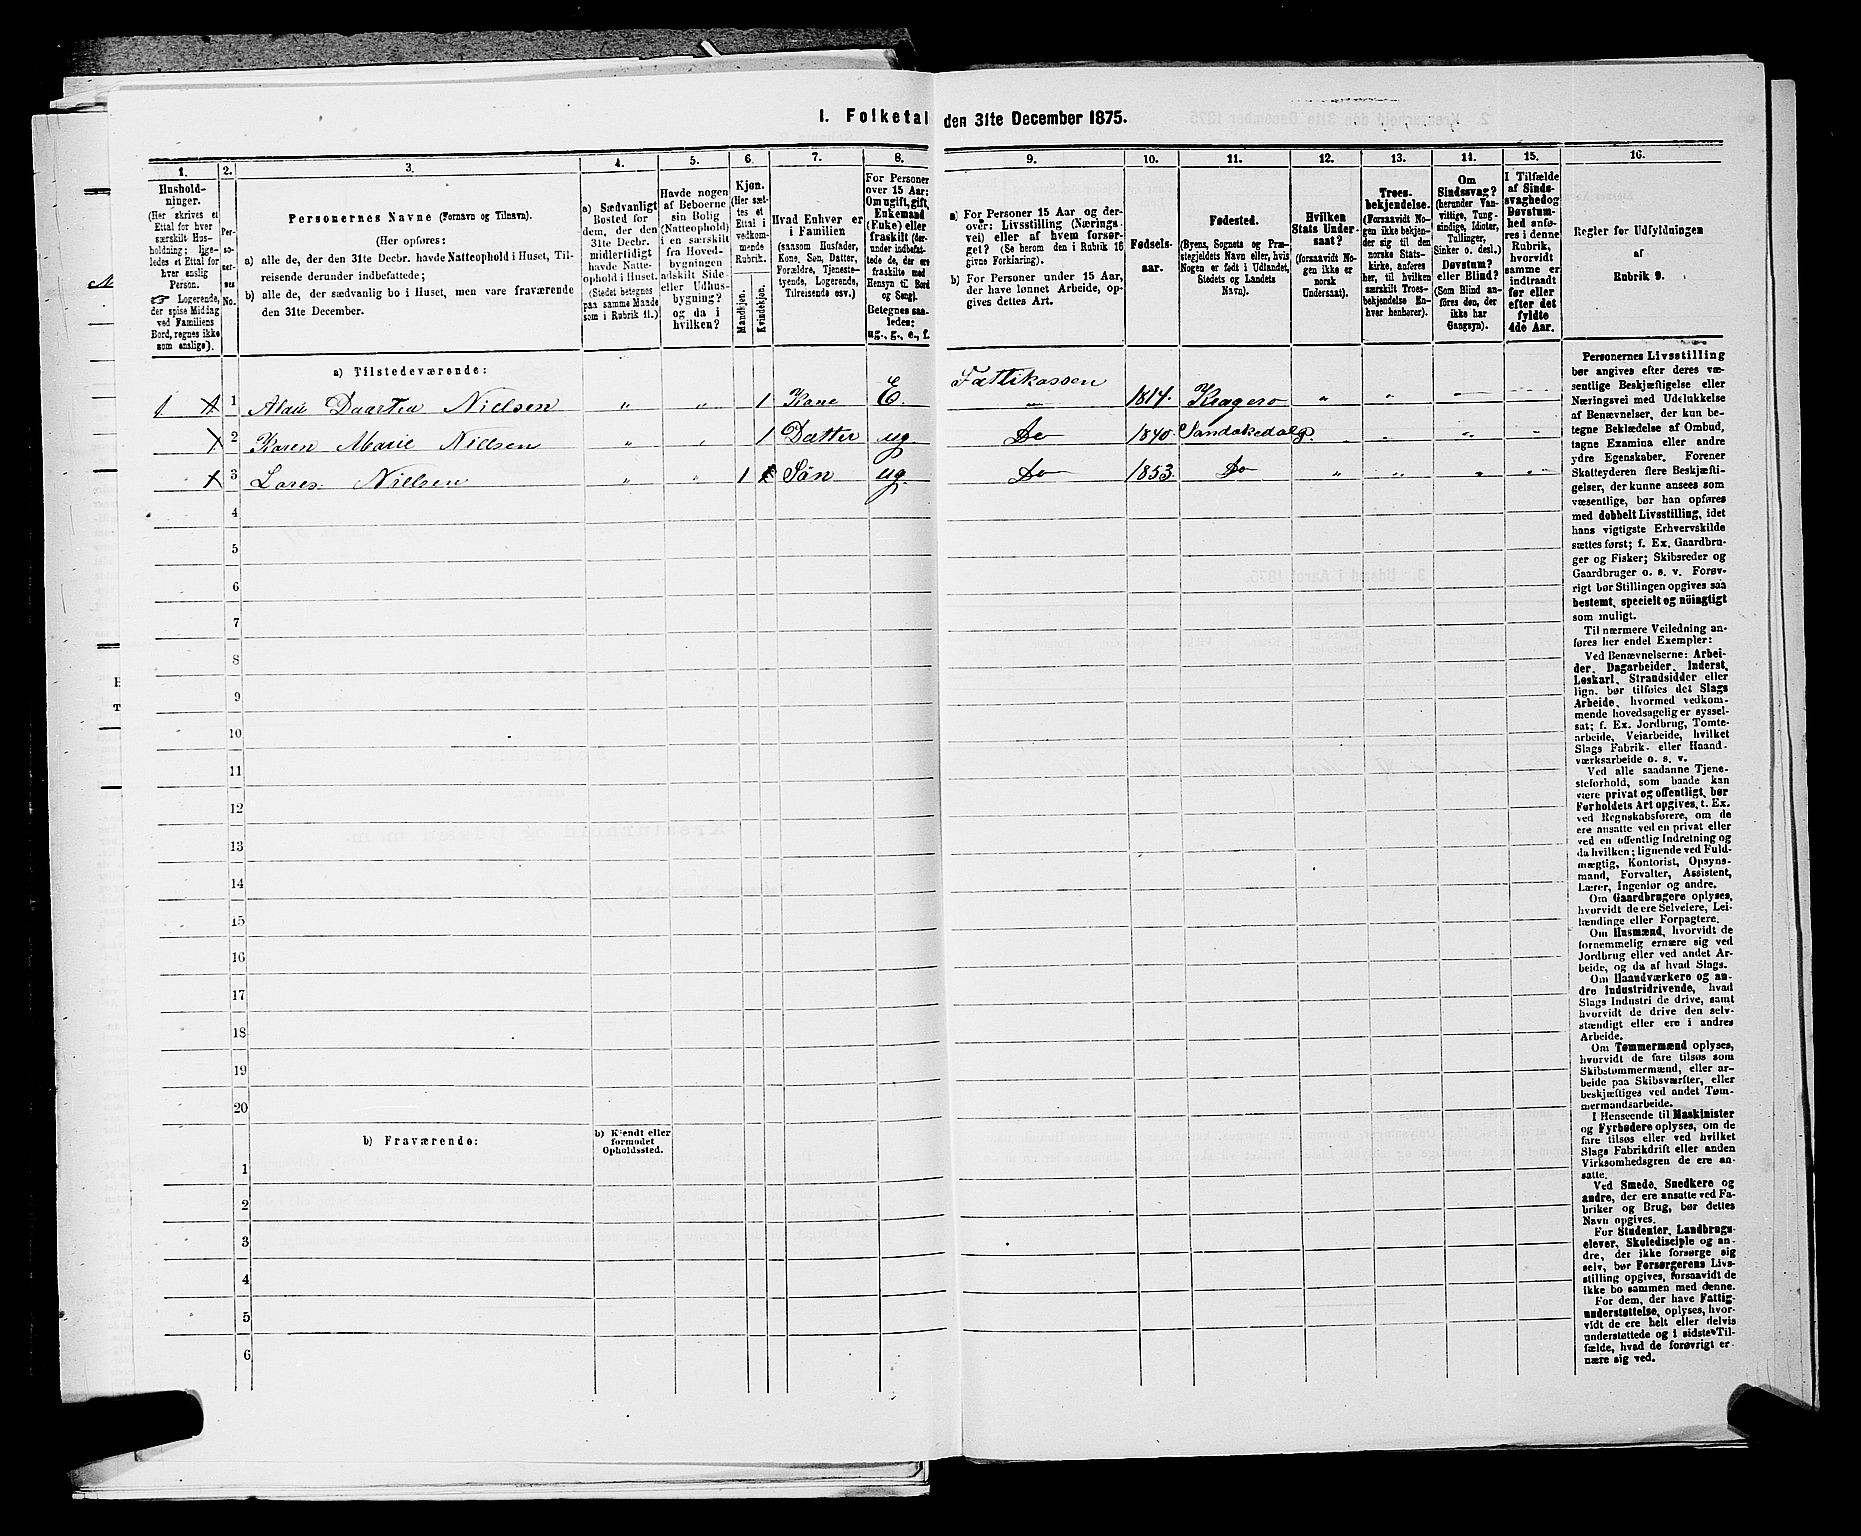 1. Folketal den 31te December 1875.
1. 2. 3. 4. 5. 6. 7. 8. 9. 10. 11. 12. 13. 14. 15. 16.
Hushold-
ninger.
(Her skrives et
Ettal for hver
særskilt Hus-
holdning; lige-
ledes et Ettal for
hver enslig
Person.
☞ Logerende,
der spise Middag
ved Familiens
Bord, regnes ikke
som enslige).
Per-
so-
ner-
nes
No.
Personernes Navne (Fornavn og Tilnavn).
(Her opføres:
a) alle de, der den 31te Decbr. havde Natteophold i Huset, Til-
reisende derunder indbefattede;
b) alle de, der sædvanlig bo i Huset, men vare fraværende
den 31te December.
a) Sædvanligt
Bosted for
dem, der den
31te Decbr.
midlertidigt
havde Natte-
ophold i Huset.
(Stedet betegnes
paa samme Maade
som i Rubrik 11.)
Havde nogen
af Beboerne
sin Bolig
(Natteophold)
i en særskilt
fra Hoved-
bygningen
adskilt Side-
eller Udhus-
bygning?
og da i
hvilken?
Kjøn.
(Her sæt-
tes et
Ettal i
vedkom-
mende
Rubrik.
Mandkjøn.
Kvindekjøn.
Hvad Enhver er
i Familien
(saasom Husfader,
Kone, Søn, Datter,
Forældre, Tjeneste-
tyende, Logerende,
Tilreisende osv.)
For Personer
over 15 Aar:
Om ugift, gift,
Enkemand
(Enke) eller
fraskilt (der-
under indbefat-
tede de, der ere
fraskilte med
Hensyn til Bord
og Seng).
Betegnes saa-
ledes;
ug., g., e., f.
a) For Personer 15 Aar og der-
over: Livsstilling (Nærings-
vei) eller af hvem forsør-
get? (Se herom den i Rubrik 16
givne Forklaring).
b) For Personer under 15 Aar,
der have lønnet Arbeide, op-
gives dettes Art.
Fødsels-
aar.
Fødested.
(Byens, Sognets og Præ-
stegjeldets Navn eller, hvis
Nogen er født i Udlandet,
Stedets og Landets
Navn).
Hvilken
Stats Under-
saat?
(forsaavidt No-
gen ikke er
norsk
Undersaat).
Troes-
bekjendelse.
(Forsaavidt No-
gen ikke bekjen-
der sig til den
norske Stats-
kirke, anføres
her, til hvilken
særskilt Troes-
bekjendelse En-
hver henhører).
Om
Sindssvag?
(herunder Van-
vittige, Tung-
sindige, Idioter,
Tullinger,
Sinker o. desl.)
Døvstum?
eller Blind?
(Som Blind an-
føres den, der
ikke har
Gangsyn).
I Tilfælde
af Sinds-
svaghed og
Døvstum-
hed anfø-
res i denne
Rubrik,
hvorvidt
samme er
indtraadt
før eller
efter det
fyldte
4de Aar.
Regler for Udfyldningen
af
Rubrik 9.
a) Tilstedeværende:
Fattikassen
1 1 Daartea Nielsen „ „ 1 Kone E. „ 1814. Kragerø „ „ „ „
2 Karen Marie Nielsen „ „ 1 Datter ug. Do 1840. Sandøkedal P. „ „ „ „
3 Lares Nielsen „ „ 1 Søn ug. Do 1853. Do „ „ „ „
4
5
6
7
8
9
10
11
12
13
14
15
16
17
18
19
20
b) Fraværende:
b) Kjendt eller
formodet
Opholdssted.
1
2
3
4
5
6
Personernes Livsstilling
bør angives efter deres væ-
sentlige Beskjæftigelse eller
Næringsvei med Udelukkelse
af Benævnelser, der kun be-
tegne Beklædelse af Ombud,
tagne Examina eller andre
ydre Egenskaber. Forener
Skatteyderen flere Beskjæfti-
gelser, der kunne ansees som
væsentlige, bør han opføres
med dobbelt Livsstilling, idet
hans vigtigste Erhvervskilde
sættes først; f. Ex. Gaardbru-
ger og Fisker; Skibsreder og
Gaardbruger o. s. v. Forøv-
rigt bør Stillingen opgives saa
bestemt, specielt og nöiagtigt
som muligt.
Til nærmere Veiledning an-
føres her endel Exempler:
Ved Benævnelserne: Arbei-
der, Dagarbeider, Inderst,
Løskarl, Strandsidder eller
lign. bør tilføies det Slags
Arbeide, hvormed vedkom-
mende hovedsagelig er syssel-
sat; f. Ex. Jordbrug, Tomte-
arbeide, Veiarbeide, hvilket
Slags Fabrik- eller Haand-
værksarbeide o. s. v.
Ved alle saadanne Tjene-
steforhold, som baade kan
være privat og offentligt, bør
Forholdets Art opgives, t. Ex.
ved Regnskabsførere, om de
ere ansatte ved en privat eller
ved en offentlig Indretning og
da hvilken; lignende ved Fuld-
mægtig, Kontorist, Opsyns-
mand, Forvalter, Assistent,
Lærer, Ingeniør og andre.
Om Gaardbrugere oplyses,
hvorvidt de ere Selveiere, Lei-
lændinge eller Forpagtere.
Om Husmænd, hvorvidt de
fornemmelig ernære sig ved
Jordbrug eller ved andet Ar-
beide, og da af hvad Slags.
Om Haandværkere og an-
dre Industridrivende, hvad
Slags Industri de drive, samt
hvorvidt de drive den selv-
stændigt eller ere i andres
Arbeide.
Om Tømmermænd oplyses,
hvorvidt de fare tilsøs som
Skibstømmermænd, eller ar-
beide paa Skibsværfter, eller
beskjæftiges ved andet Tøm-
mermandsarbeide.
I Henseende til Maskinister
og Fyrbødere oplyses, om de
fare tilsøs eller ved hvilket
Slags Fabrikdrift eller anden
Virksomhedsgren de ere an-
satte.
Ved Smede, Snedkere og
andre, der ere ansatte ved Fa-
briker og Brug, bør dettes
Navn opgives.
For Studenter, Landbrugs-
elever, Skoledisciple og an-
dre, der ikke forsørge sig
selv, bør Forsørgerens Livs-
stilling opgives, forsaavidt de
ikke bo sammen med denne.
For dem, der have Fattig-
understøttelse, oplyses, hvor-
vidt de ere helt eller delvis
understøttede og i sidste Til-
fælde, hvad de forøvrigt er-
nære sig ved.